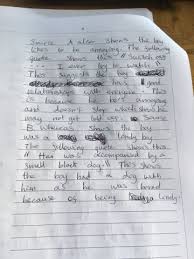 Source A also shows the boy
likes to be annoying. The following
quote shows this "
as I ever boy to watch"
This suggests the boy
has good
relationships with everyone. This
is because he's annoying
and doesn't stop which
may not get told off. Source
B Whereas shows the boy
was a lonely boy
The following quote shows this
" Hair was accompanied by a
small black dog." This shows
the boy had a dog with
him as he was bored
because of being lonely.